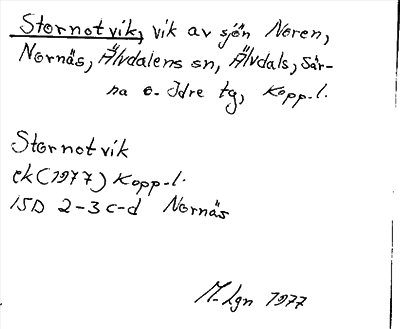 Stornotvik, vik av sjön Noren,
Nornäs, Älvdalens sn, Älvdals, Sär-
na o. Idre tg, Kopp. l.
Stornotvik
ek (1977) Kopp. l.
15D 2-3 c-d Nornäs
M. Lgn 1977